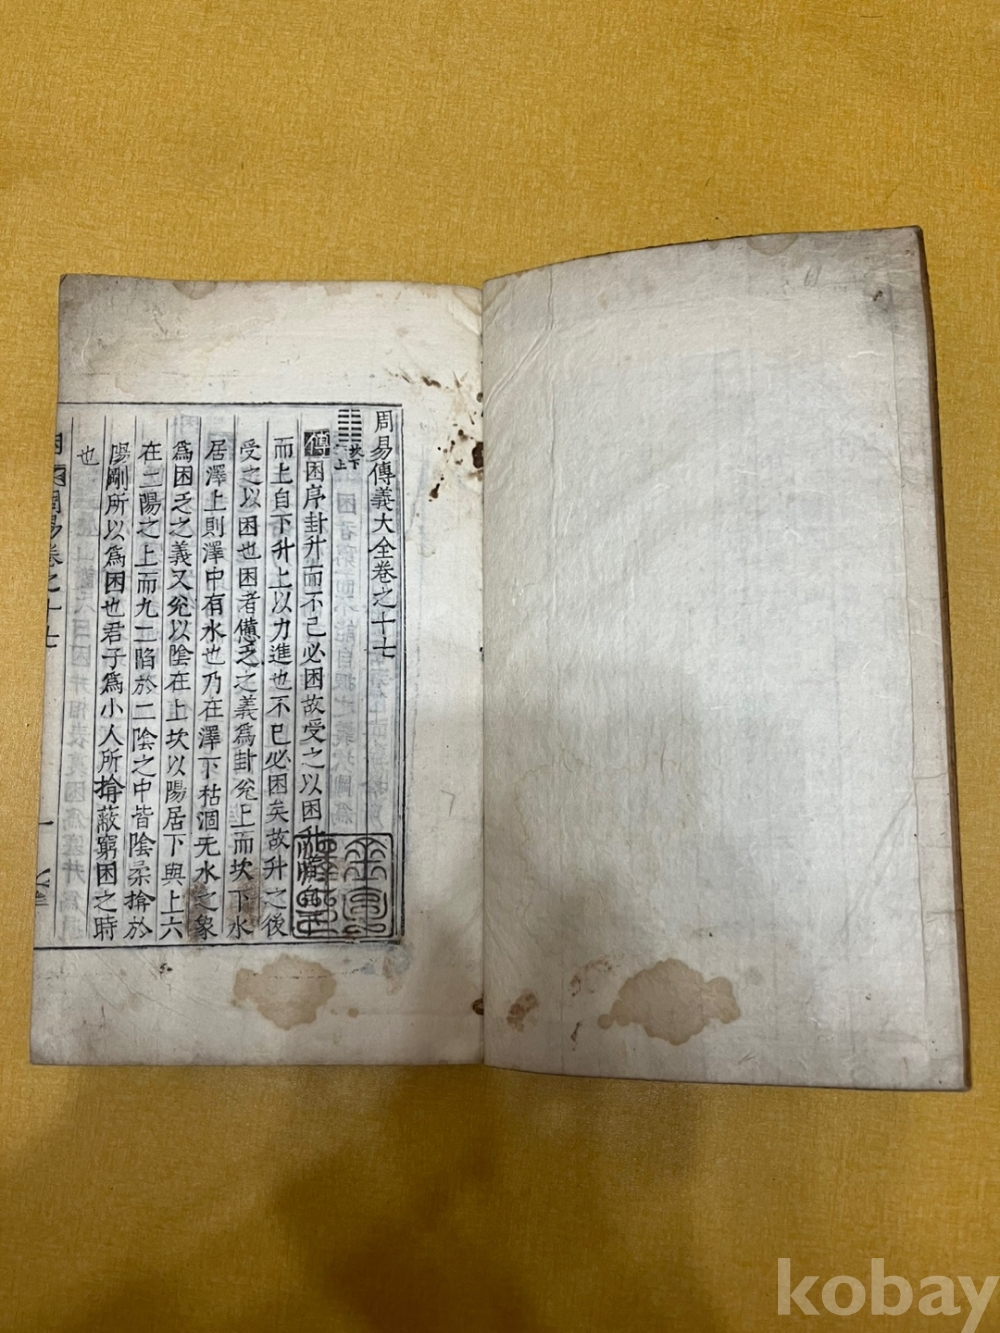 周易傳義大全卷之十七
坎下
上
傳困序卦升而不已必困故受之以困升
而上自下升上以力進也不已必困矣故升之後
受之以困也困者憊乏之義爲卦兊上而坎下水
居澤上則澤中有水也乃在澤下枯涸无水之象
爲困乏之義又兊以陰在上坎以陽居下與上六
在二陽之上而九二陷於二陰之中皆陰柔揜於
陽剛所以爲困也君子爲小人所揜蔽窮困之時
也
周易卷之十七
一
kobay